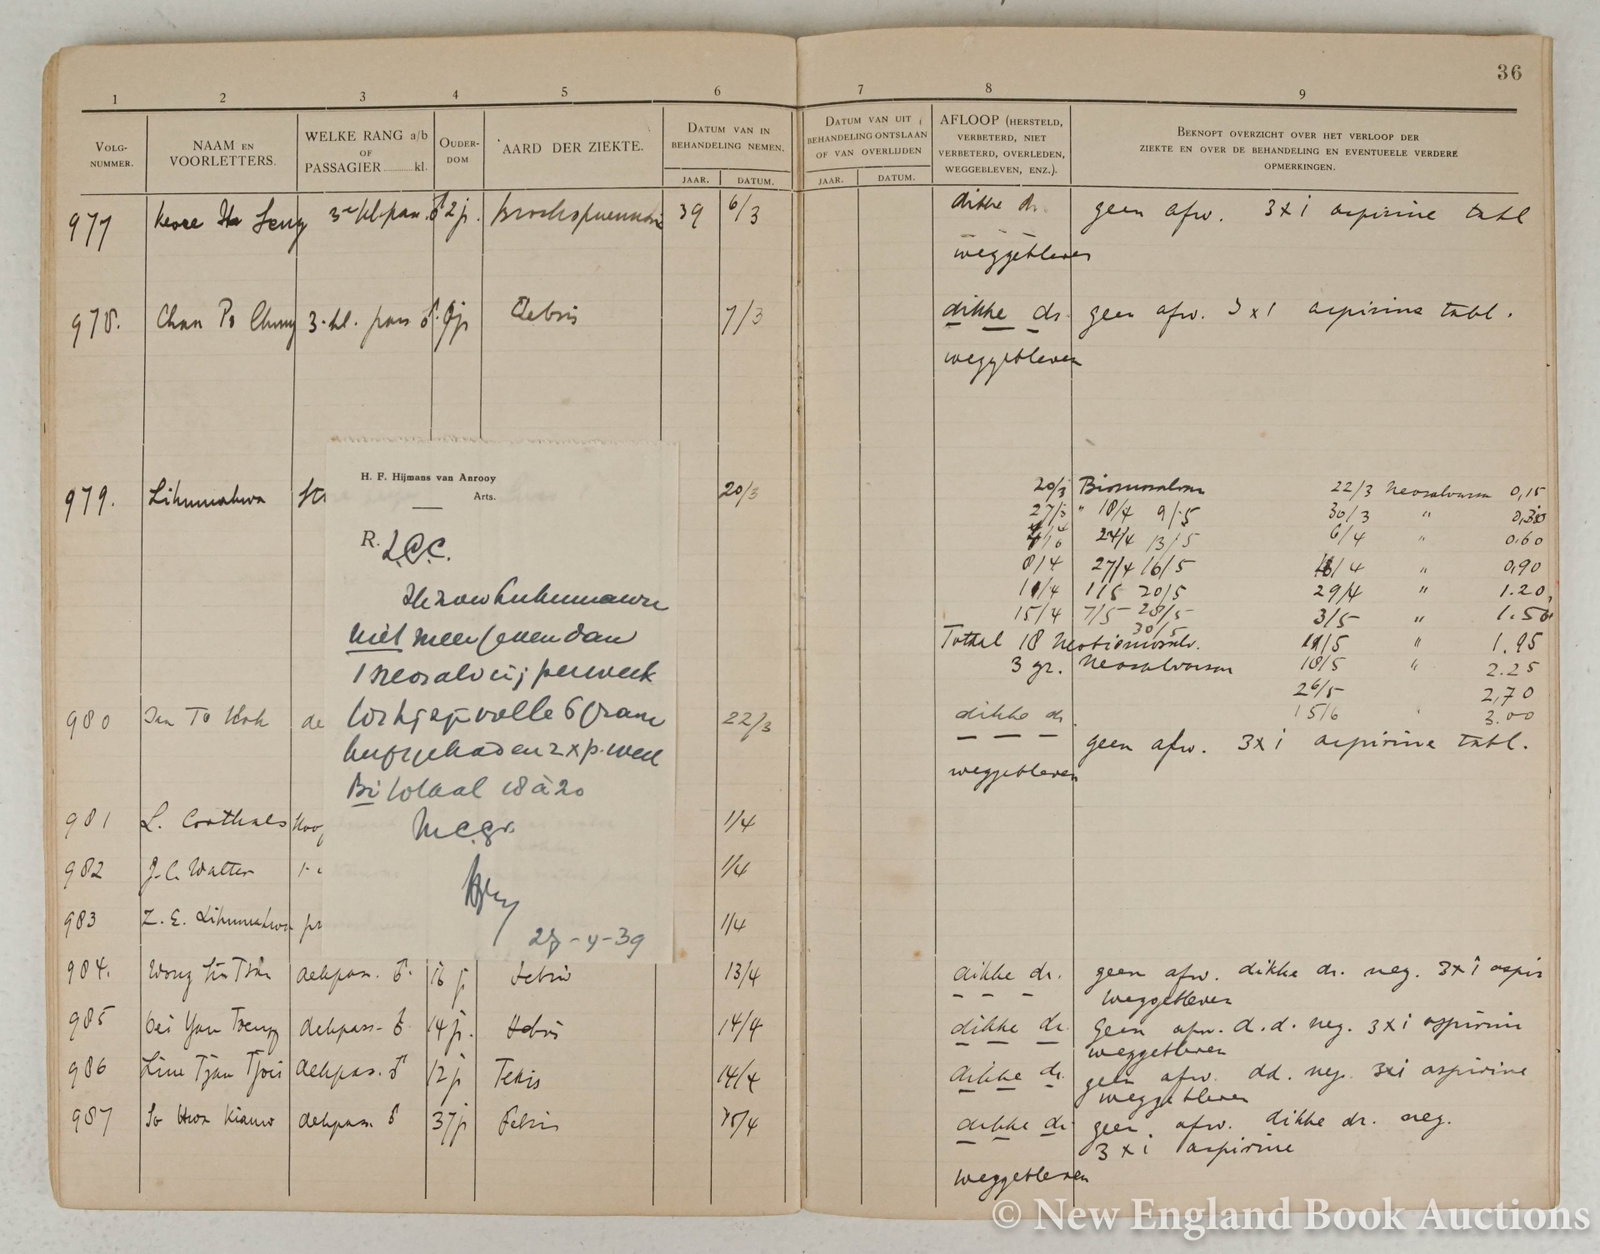 36
1 2 3 4 5 6 7 8 9
VOLG-NUMMER.
NAAM EN VOORLETTERS.
WELKE RANG a/b OF PASSAGIER ........ kl.
OUDER-DOM
AARD DER ZIEKTE.
DATUM VAN IN BEHANDELING NEMEN.
JAAR. DATUM.
DATUM VAN UIT BEHANDELING ONTSLAAN OF VAN OVERLIJDEN
JAAR. DATUM.
AFLOOP (HERSTELD, VERBETERD, NIET VERBETERD, OVERLEDEN, WEGGEBLEVEN, ENZ.).
BEKNOPT OVERZICHT OVER HET VERLOOP DER ZIEKTE EN OVER DE BEHANDELING EN EVENTUEELE VERDERE OPMERKINGEN.
977 Seng 3e kl. pas. ♂ 2 j. 39 6/3 dikke dr. geen afw. 3 x 1 aspirine tabl
weggebleven
978. Chan Po Chung 3 kl. pas ♂ 9 j. Febris 7/3 dikke dr. geen afw. 3 x 1 aspirine tabl.
weggebleven
979. Likumahwa 20/3
20/3 Bismosalvan 22/3 Neosalvarsan 0,15
27/3 " 18/4 9/5 30/3 " 0,30
24/4 13/5 6/4 " 0.60
8/4 27/4 16/5 18/4 " 0,90
11/4 1/5 20/5 29/4 " 1.20
15/4 7/5 28/5 3/5 " 1.50
30/5
Totaal 18 Neobismosalv. 11/5 " 1.95
3 gr. Neosalvarsan 18/5 " 2.25
26/5 2,70
15/6 3.00
H. F. Hijmans van Anrooy
Arts.
R. L.C.C.
niet meer geven dan
1 neosalv inj per week
volle 3 gram
2 x p. week
Bi totaal 18 à 20
m.c.gr.
27-4-39
980 Tan To Hok de 22/3 dikke dr.
geen afw. 3 x 1 aspirine tabl.
weggebleven
981 L. Corthals 1/4
982 J.C. Walter 1/4
983 Z. E. Likumahwa 1/4
984. Wong Tian dekpas. ♂. 16 j febris 13/4 dikke dr. geen afw. dikke dr. neg. 3 x 1 aspir
weggebleven
985 Oei Yan Tseng dekpas. ♂ 14 j. febris 14/4 dikke dr. geen afw. d.d. neg. 3 x 1 aspirine
weggebleven
986 Lim Tjan Tjoei dekpas. ♂ 12 j 14/4 dikke dr. geen afw. dd. neg. 3x1 aspirine
weggebleven
987 So Hwa dekpas. ♂ 37 j Febris 15/4 dikke dr. geen afw. dikke dr. neg.
3 x 1 aspirine
weggebleven
© New England Book Auctions